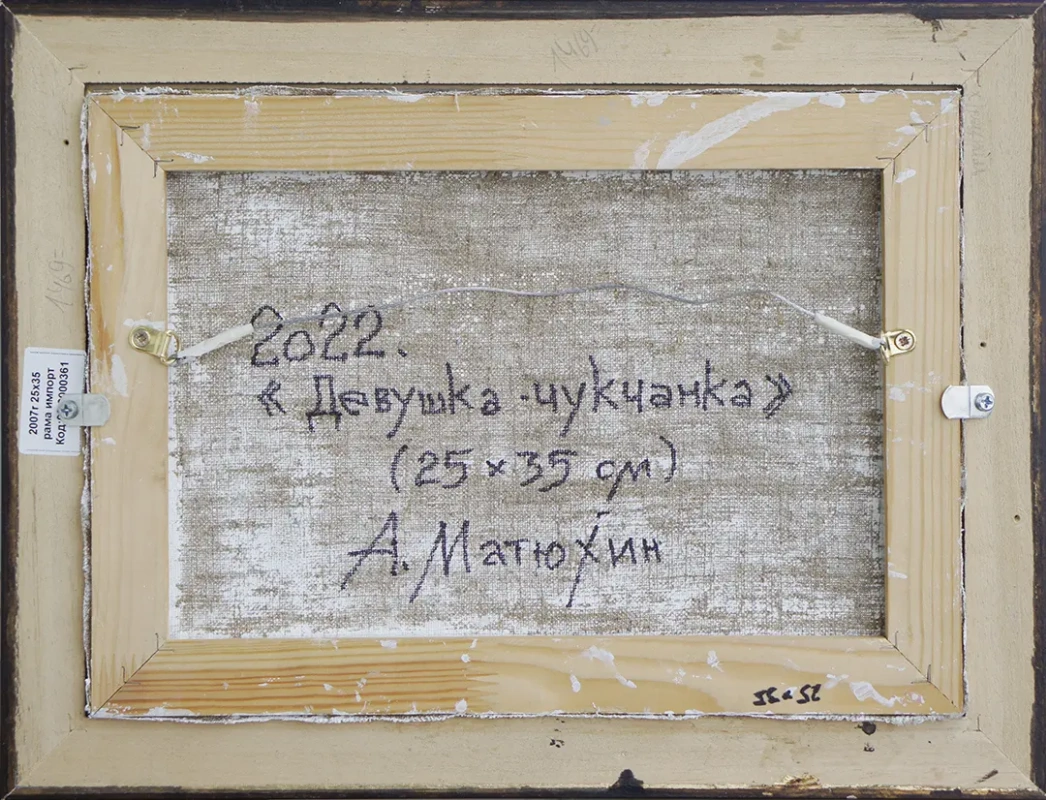 1469-
1469-
2007г 25х35
рама импорт
Код
000361
2022.
«Девушка-чукчанка»
(25×35 см)
А. Матюхин
25×35